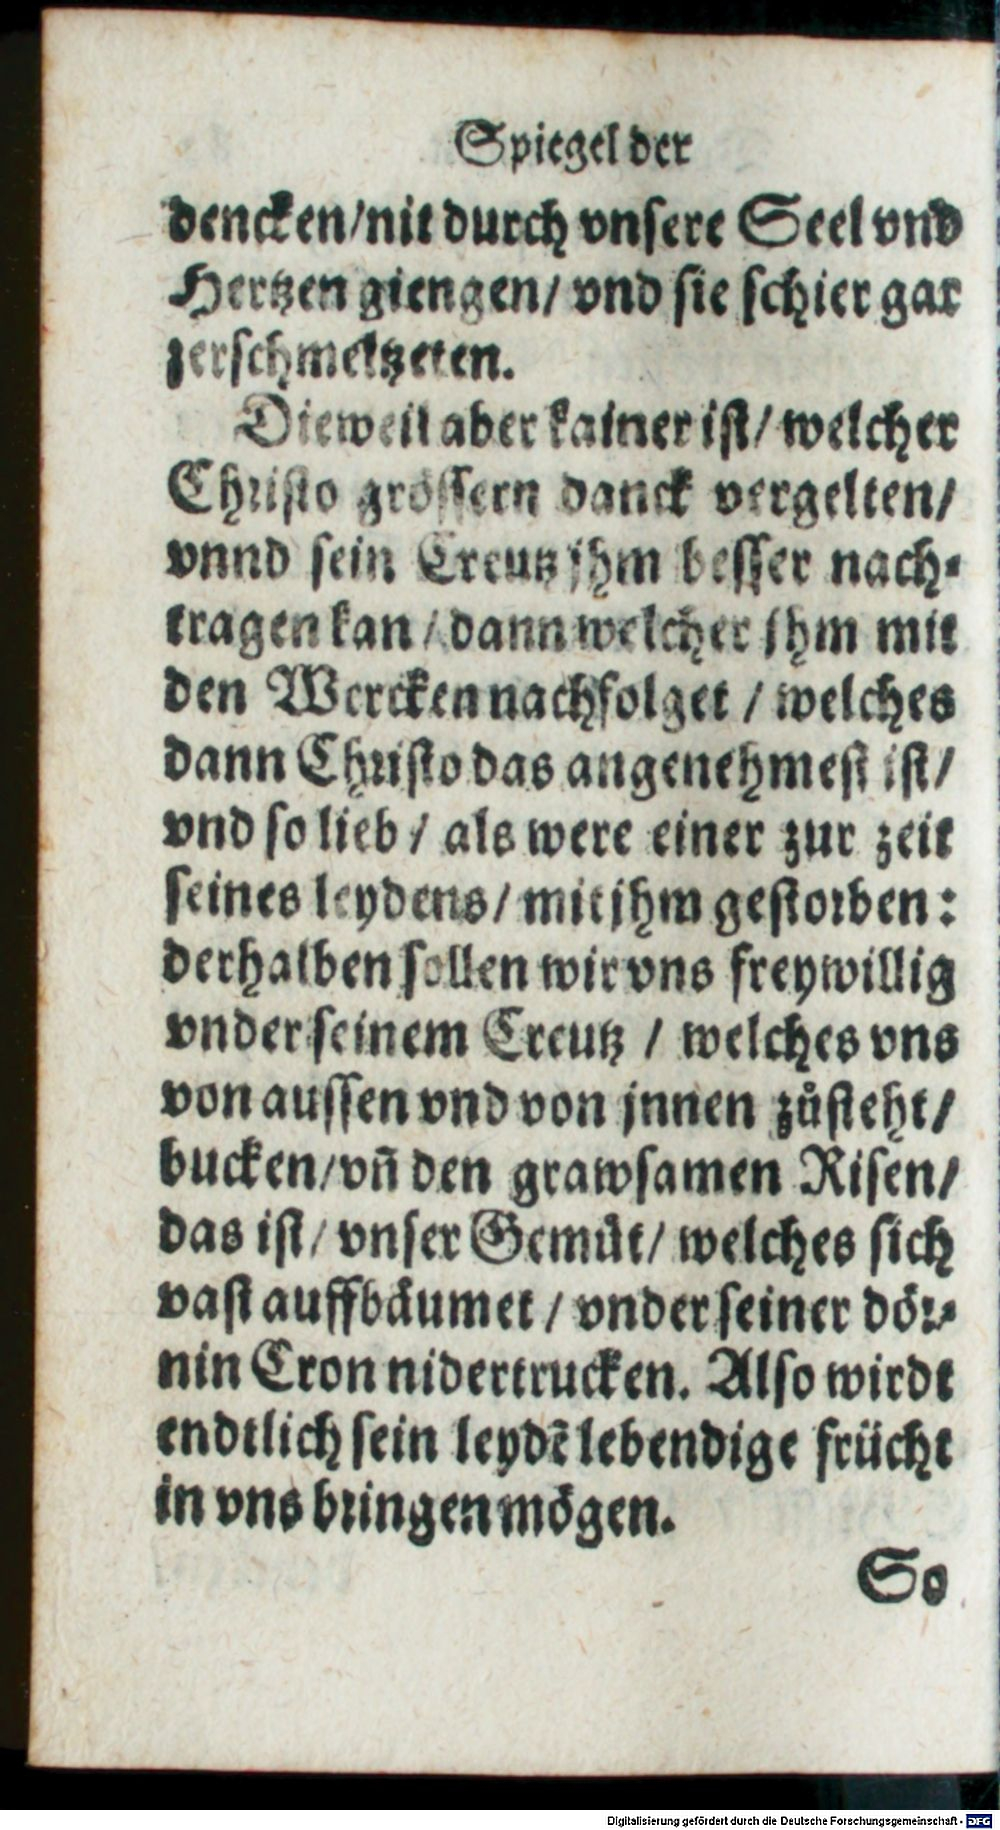 Spiegel der
dencken/nit durch vnsere Seel vnd
Hertzen giengen/ vnd sie schier gar
zerschmeltzeten.
Dieweil aber kainer ist/ welcher
Christo grössern danck vergelten/
vnnd sein Creutz jhm besser nach-
tragen kan / dann welcher jhm mit
den Wercken nachfolget / welches
dann Christo das angenehmest ist/
vnd so lieb / als were einer zur zeit
seines leydens/ mit jhm gestorben:
derhalben sollen wir vns freywillig
vnder seinem Creutz / welches vns
von aussen vnd von jnnen zůsteht/
bucken/vñ den grawsamen Risen/
das ist/ vnser Gemüt/ welches sich
vast auffbäumet / vnder seiner dör-
nin Cron nidertrucken. Also wirdt
endtlich sein leydẽ lebendige frücht
in vns bringen mögen.
So
Digitalisierung gefördert durch die Deutsche Forschungsgemeinschaft - DFG